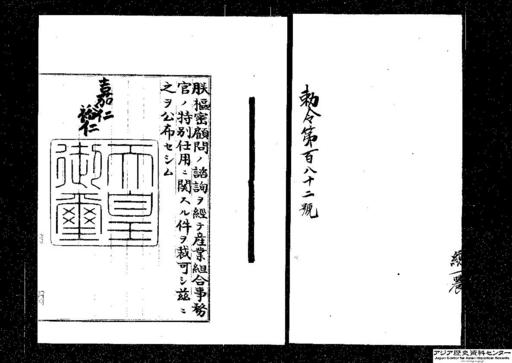 勅令第百八十二號
朕樞密顧問ノ諮詢ヲ經テ産業組合事務
官ノ特別任用ニ関スル件ヲ裁可シ茲ニ
之ヲ公布セシム
嘉仁
裕仁
天皇
御璽
アジア歴史資料センター
Japan Center for Asian Historical Records